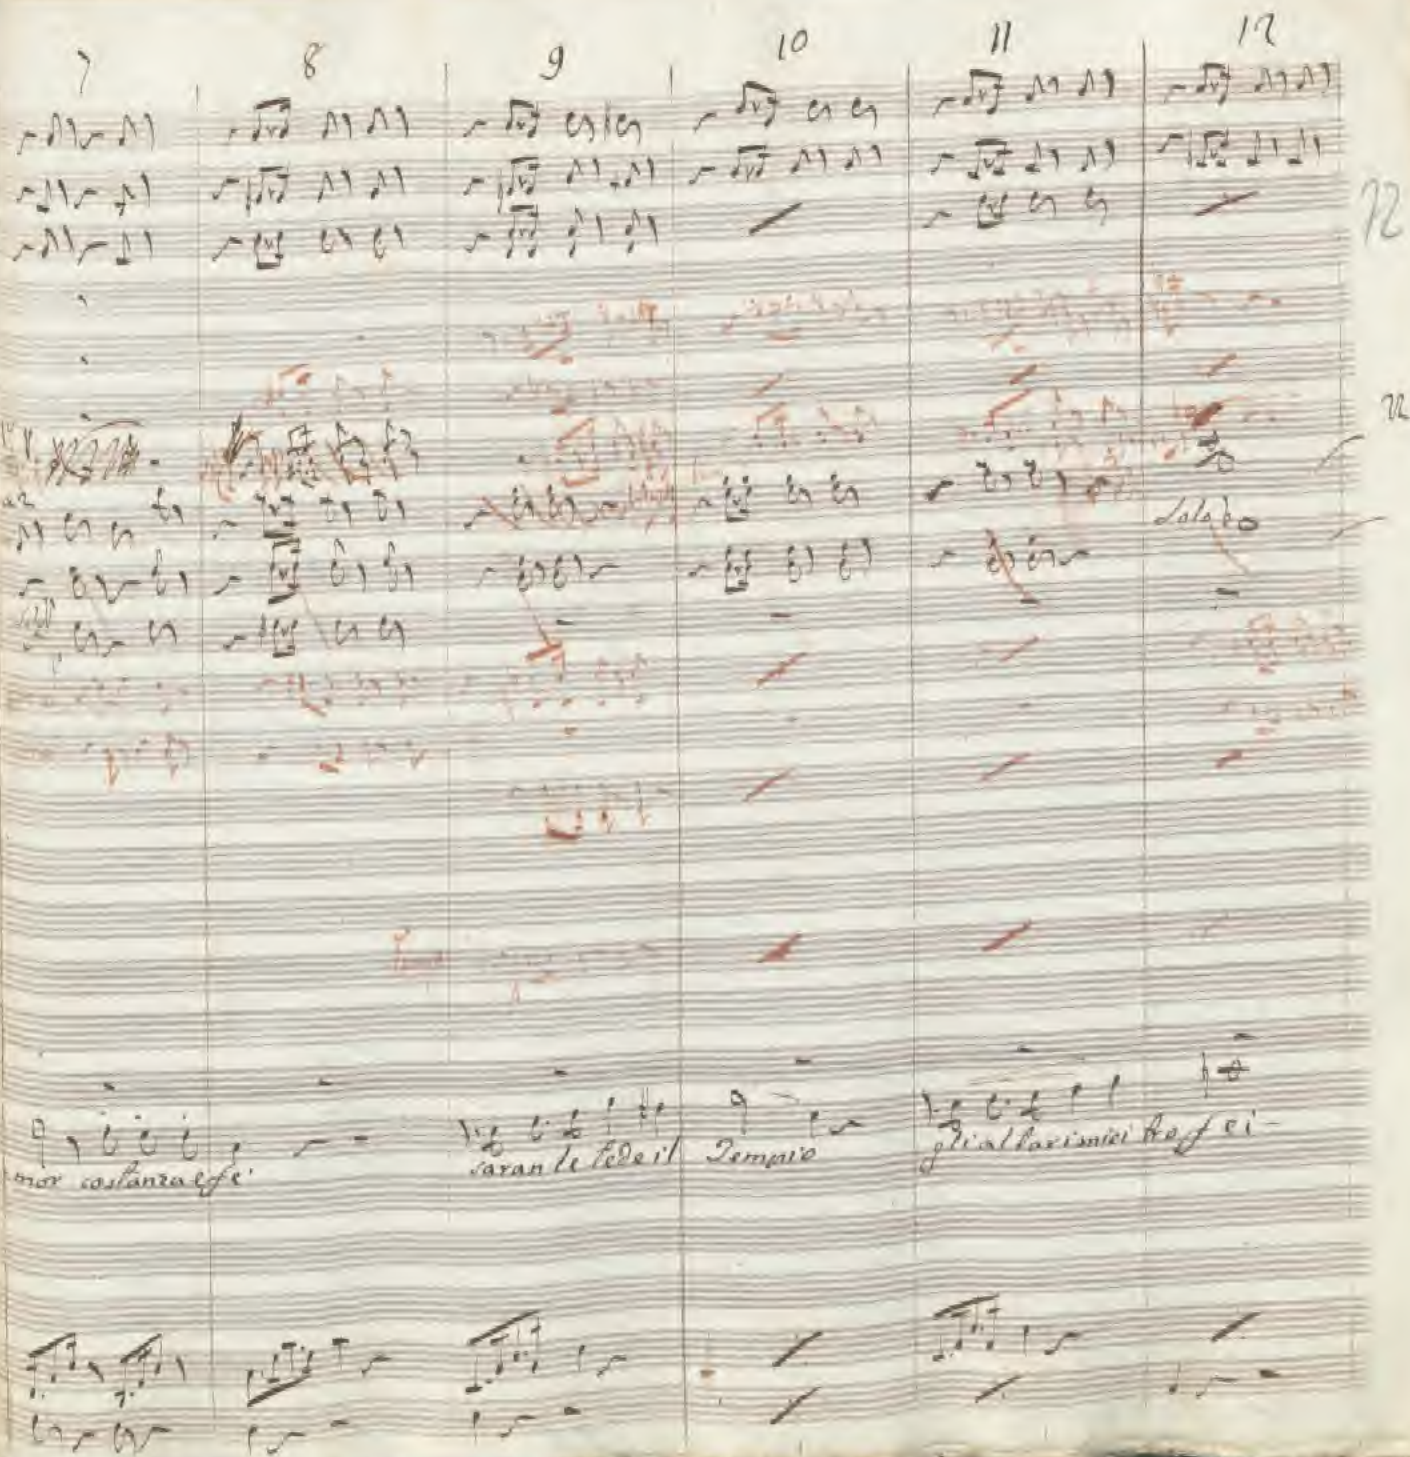 7 8 9 10 11 12
72
22
a 2
Solo
mor costanza e fé saran le tede il Tempio gli altari i miei trofei-